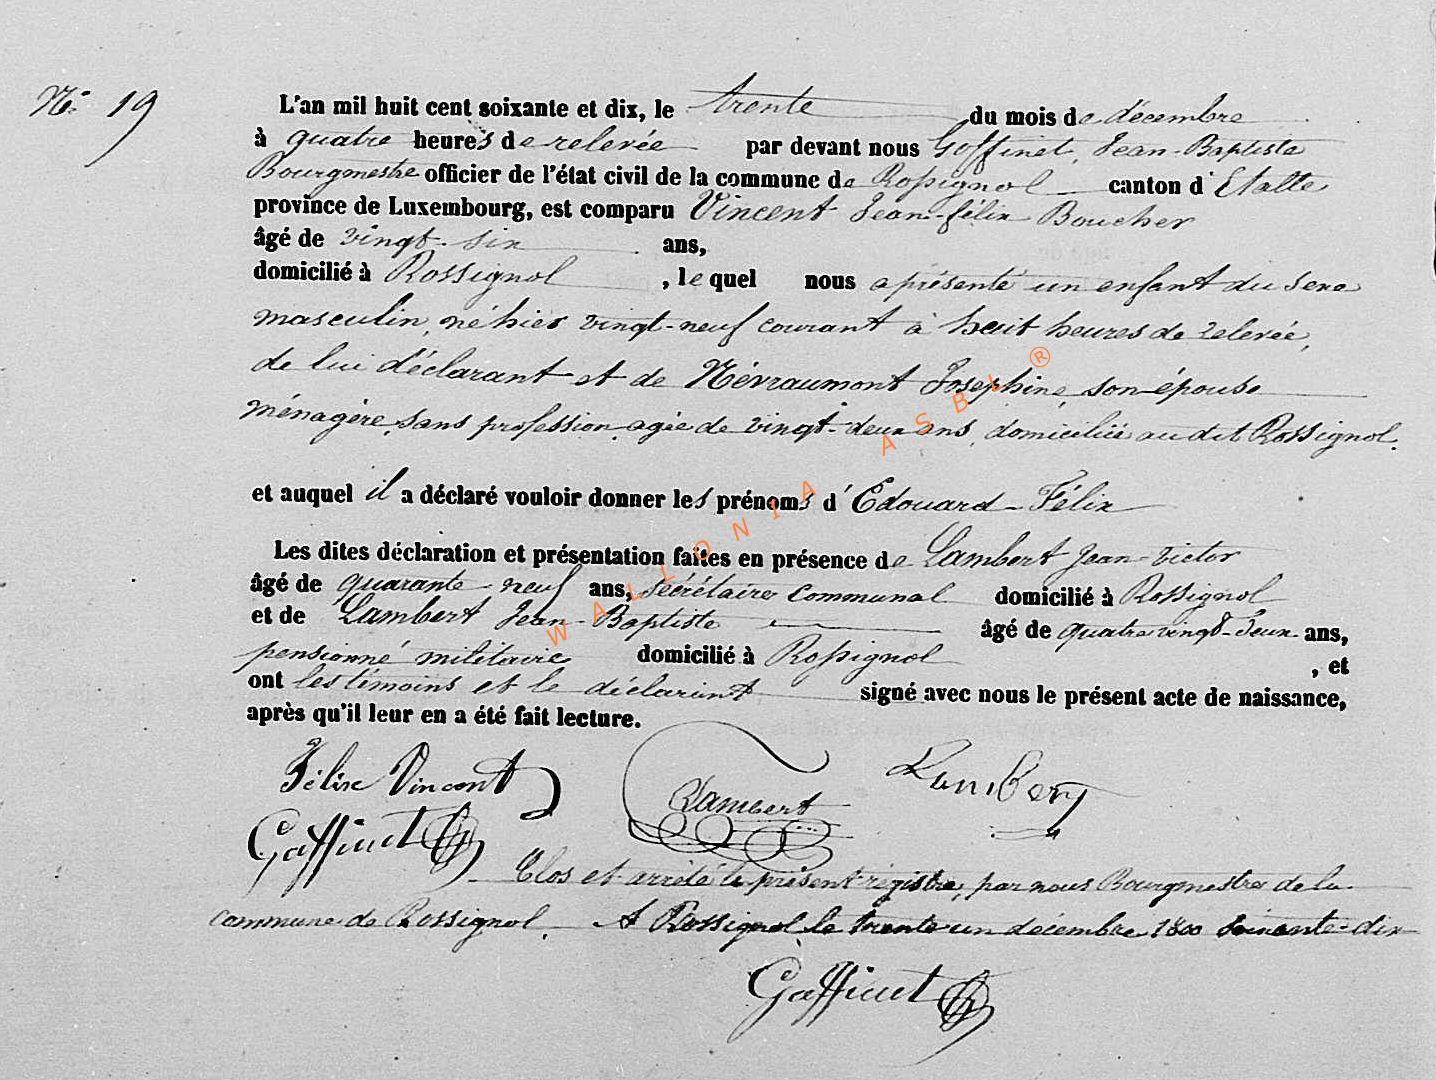 No 19
L'an mil huit cent soixante et dix, le trente du mois de décembre
à quatre heures de relevée par devant nous Goffinet, Jean-Baptiste
Bourgmestre officier de l'état civil de la commune de Rossignol canton d'Etalle
province de Luxembourg, est comparu Vincent Jean-félix Boucher
âgé de vingt-six ans,
domicilié à Rossignol, le quel nous a présenté un enfant du sexe
masculin, né hier vingt-neuf courant à huit heures de relevée,
de lui déclarant et de Névraumont Josephine, son épouse
ménagère, sans profession, agée de vingt-deux ans, domiciliée au dit Rossignol.
et auquel il a déclaré vouloir donner les prénoms d'Edouard-Félix
Les dites déclaration et présentation faites en présence de Lambert Jean-Victor
âgé de quarante-neuf ans, secrétaire communal domicilié à Rossignol
et de Lambert Jean-Baptiste âgé de quatre vingt-deux ans,
pensionné militaire domicilié à Rossignol, et
ont les témoins et le déclarant signé avec nous le présent acte de naissance,
après qu'il leur en a été fait lecture.
Félix Vincent Lambert Lambert
Goffinet
Clos et arrêté le présent régistre, par nous Bourgmestre de la
commune de Rossignol. A Rossignol le trente un décembre 1800 soixante-dix
Goffinet
WALLONIA ASBL ®